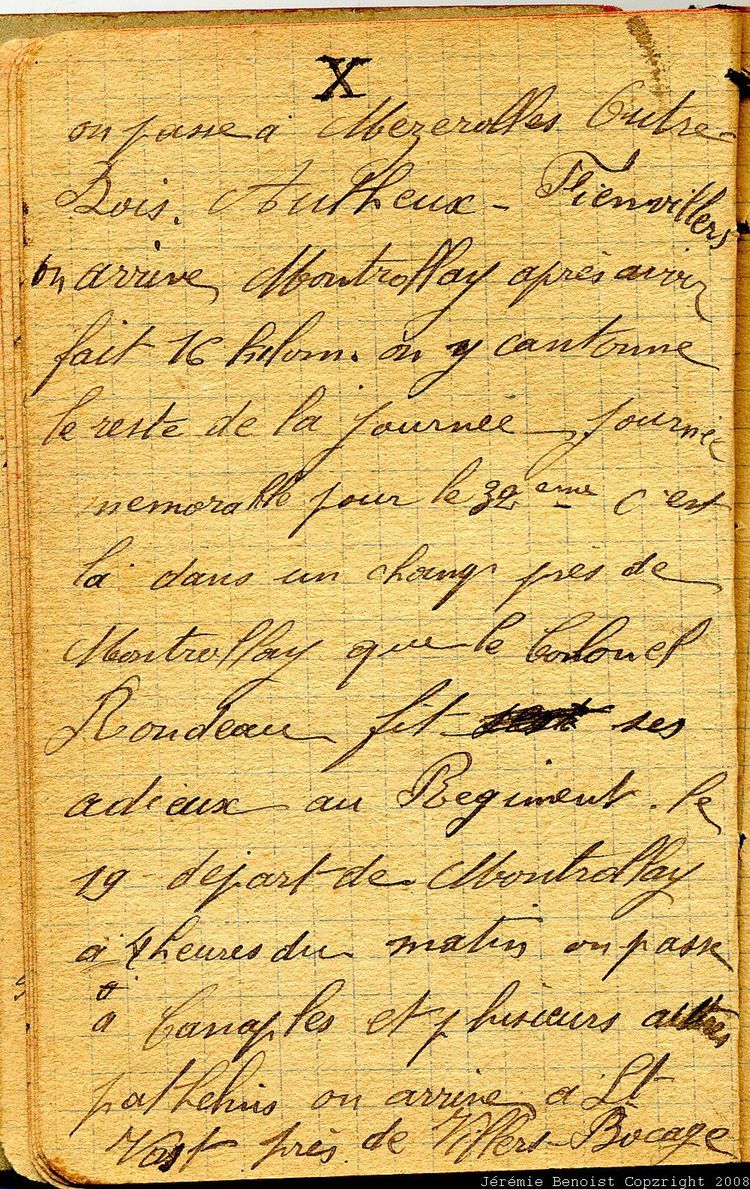 X
on passe à Mezerolles Outre-
Bois. Autheux - Fienvillers
on arrive Montrellay après avoir
fait 16 kilom. on y cantonne
le reste de la journée, journée
memorable pour le 32eme c'est
la dans un champ près de
Montrellay que le Colonel
Rondeau fit ses
adieux au Regiment. le
19 départ de Montrellay
à 4 heures du matin on passe
à Canaples et plusieurs autres
pathelins on arrive a St
Vast près de Villers-Bocage
Jérémie Benoist Copzright 2008